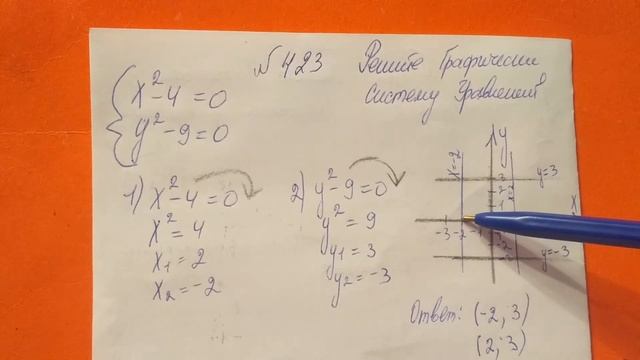 №423 Решите Графически
Систему Уравнений
x²-4=0
y²-9=0
1) x²-4=0
x²=4
x₁=2
x₂=-2
2) y²-9=0
y²=9
y₁=3
y₂=-3
y
x=-2
x=2
y=3
x
-3 -2 -1
y=-3
Ответ: (-2; 3)
(2; 3)